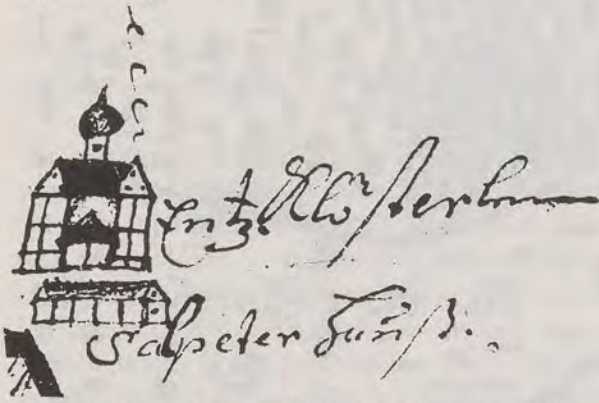 Entz. Klösterlen
Salpeter hauß.